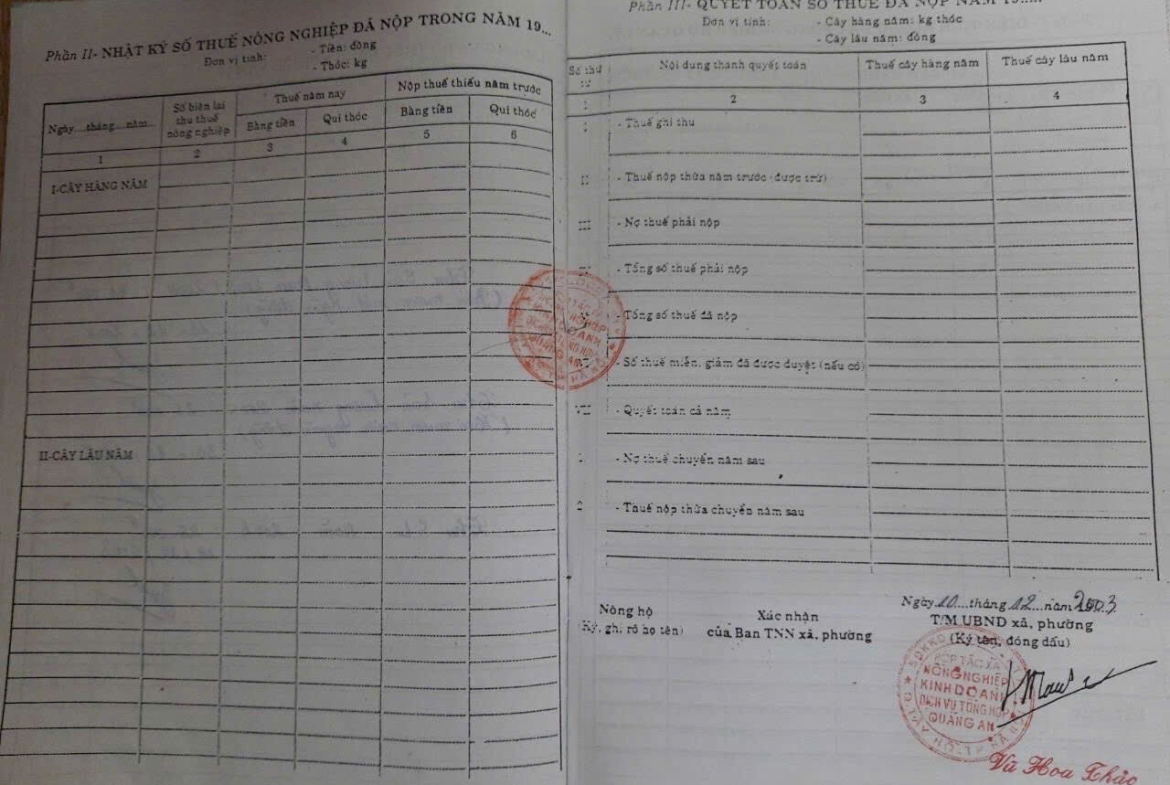 Phần II- NHẬT KÝ SỐ THUẾ NÔNG NGHIỆP ĐÃ NỘP TRONG NĂM 19...
Đơn vị tính:
- Tiền: đồng
- Thóc: kg
Ngày....tháng...năm...
Số biên lai thu thuế nông nghiệp
Thuế năm nay
Nộp thuế thiếu năm trước
Bằng tiền
Qui thóc
Bằng tiền
Qui thóc
1
2
3
4
5
6
I-CÂY HÀNG NĂM
II-CÂY LÂU NĂM
Phần III- QUYẾT TOÁN SỐ THUẾ ĐÃ NỘP NĂM 19.....
Đơn vị tính:
- Cây hàng năm: kg thóc
- Cây lâu năm: đồng
Số thứ
Nội dung thanh quyết toán
Thuế cây hàng năm
Thuế cây lâu năm
1
2
3
4
I
- Thuế ghi thu
II
- Thuế nộp thừa năm trước (được trừ)
III
- Nợ thuế phải nộp
- Tổng số thuế phải nộp
- Tổng số thuế đã nộp
- Số thuế miễn, giảm đã được duyệt (nếu có)
VII
- Quyết toán cả năm
- Nợ thuế chuyển năm sau
2
- Thuế nộp thừa chuyển năm sau
Nông hộ
(Ký, ghi rõ họ tên)
Xác nhận
của Ban TNN xã, phường
Ngày 10...tháng 12...năm 2003
T/M UBND xã, phường
(Ký tên, đóng dấu)
HỢP TÁC XÃ
NÔNG NGHIỆP
KINH DOANH
DỊCH VỤ TỔNG HỢP
QUẢNG AN
Vũ Hoa Thảo